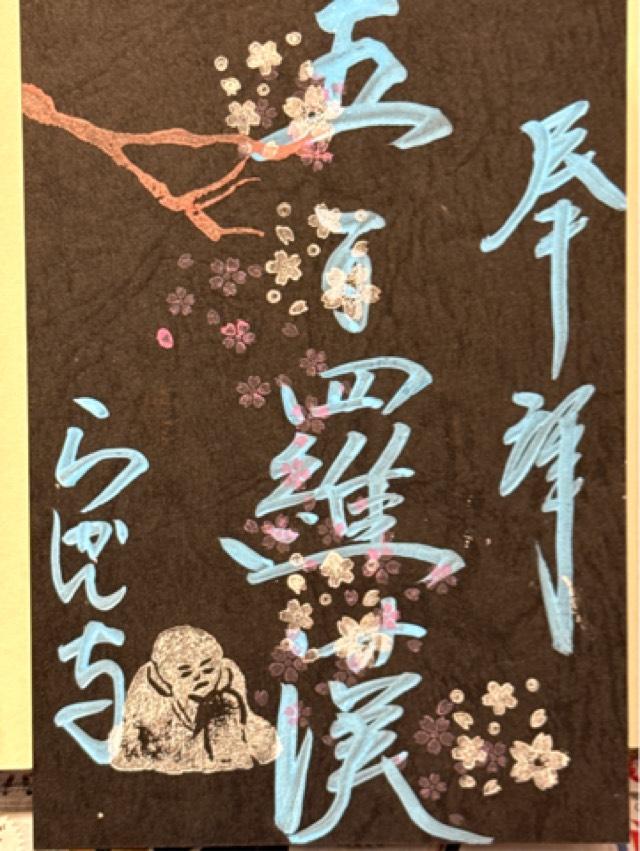 奉拝
五百羅漢
らかん寺